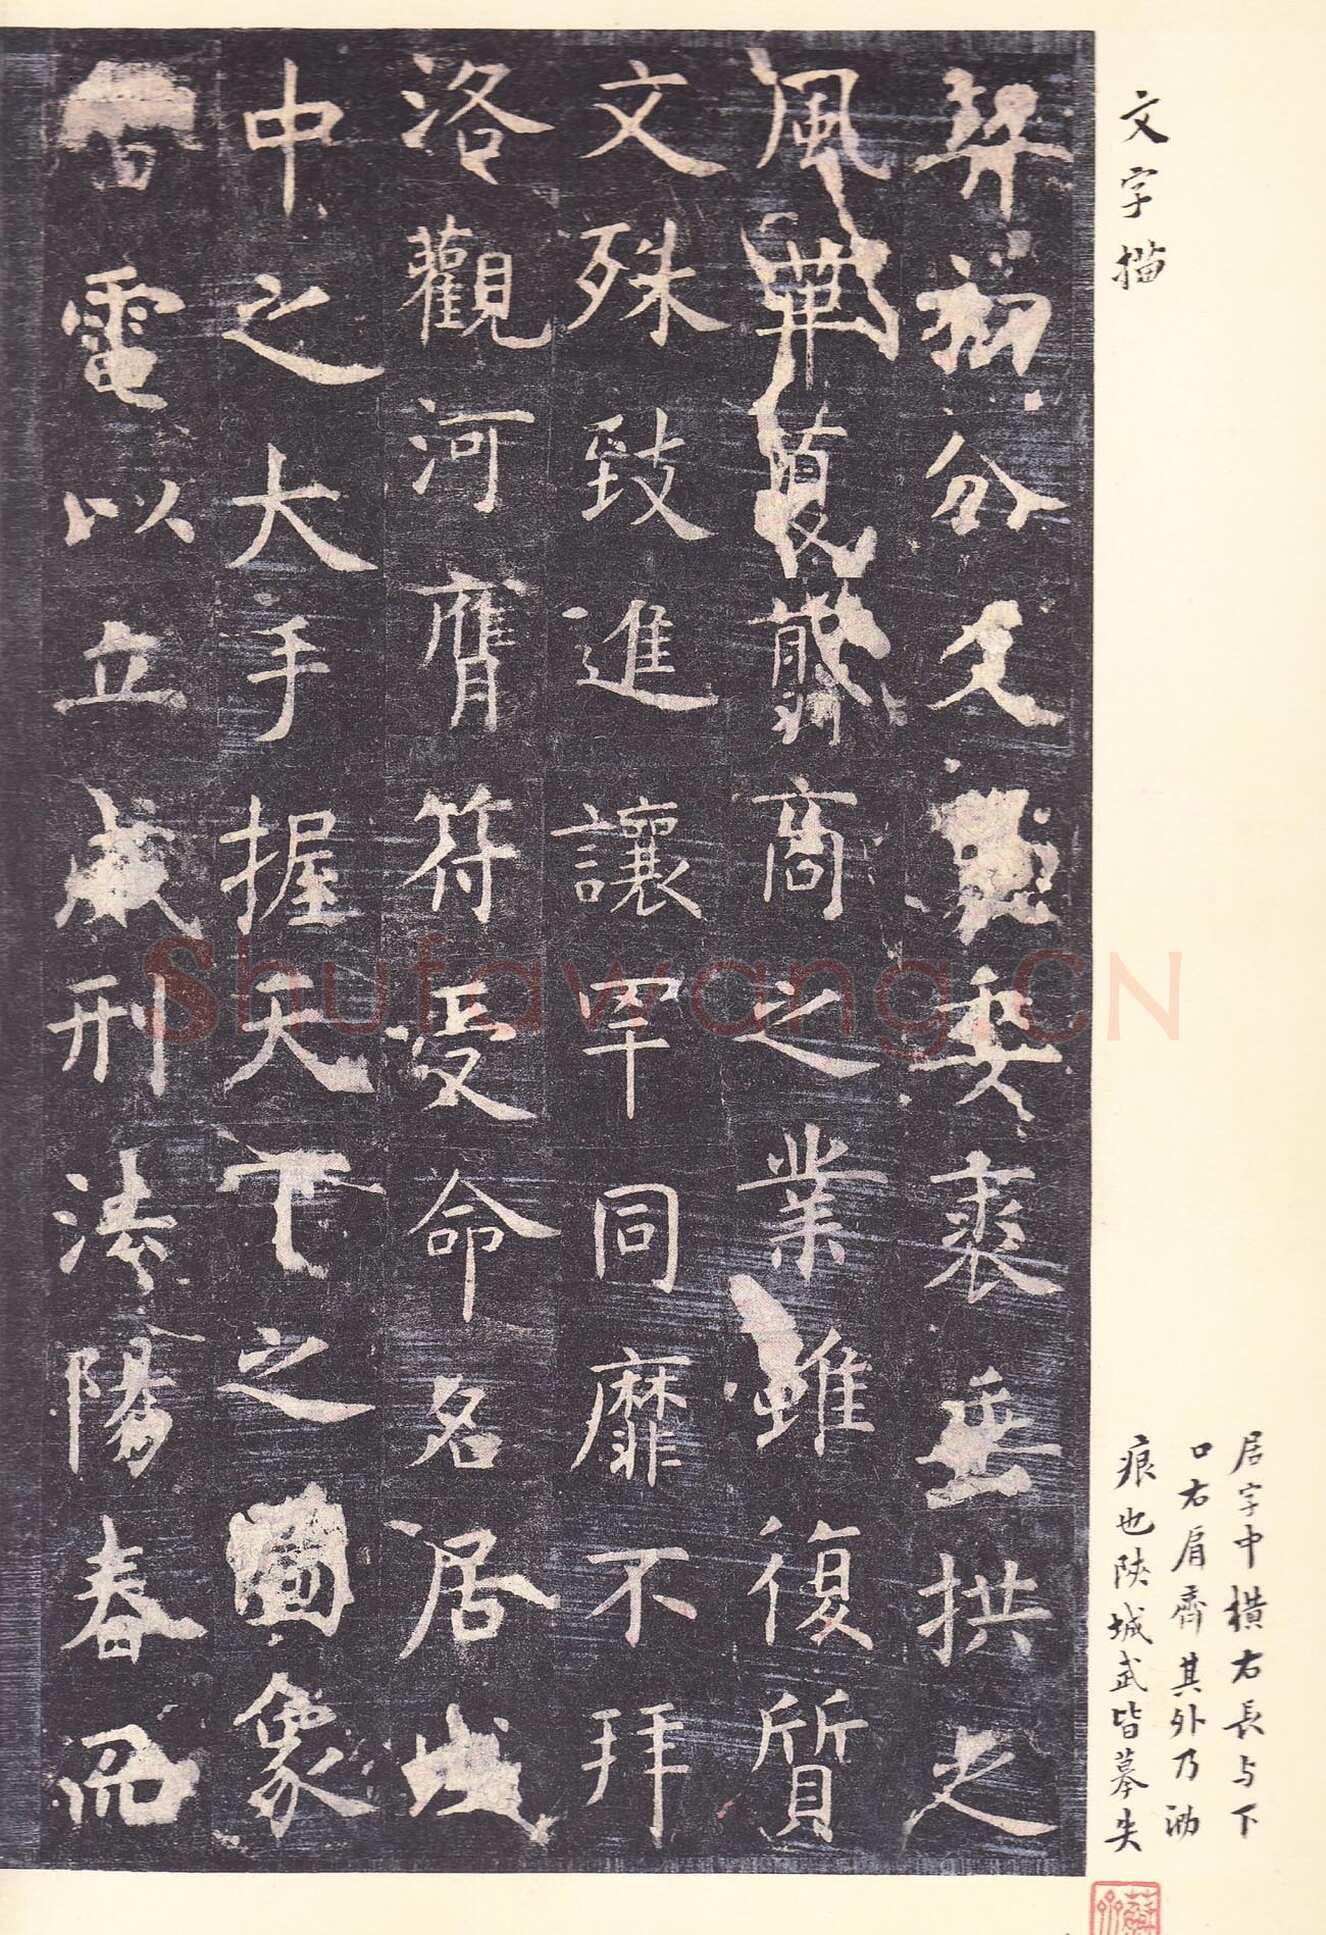 居字中橫右長与下
口右肩齊其外乃泐
文字描
痕也陝城武皆摹失
契初分爻象委裘垂拱之
風革夏翦商之業雖復質
文殊致進讓罕同靡不拜
洛觀河膺符受命名居域
中之大手握天下之圖象
雷電以立威刑法陽春而
Shufawang.CN